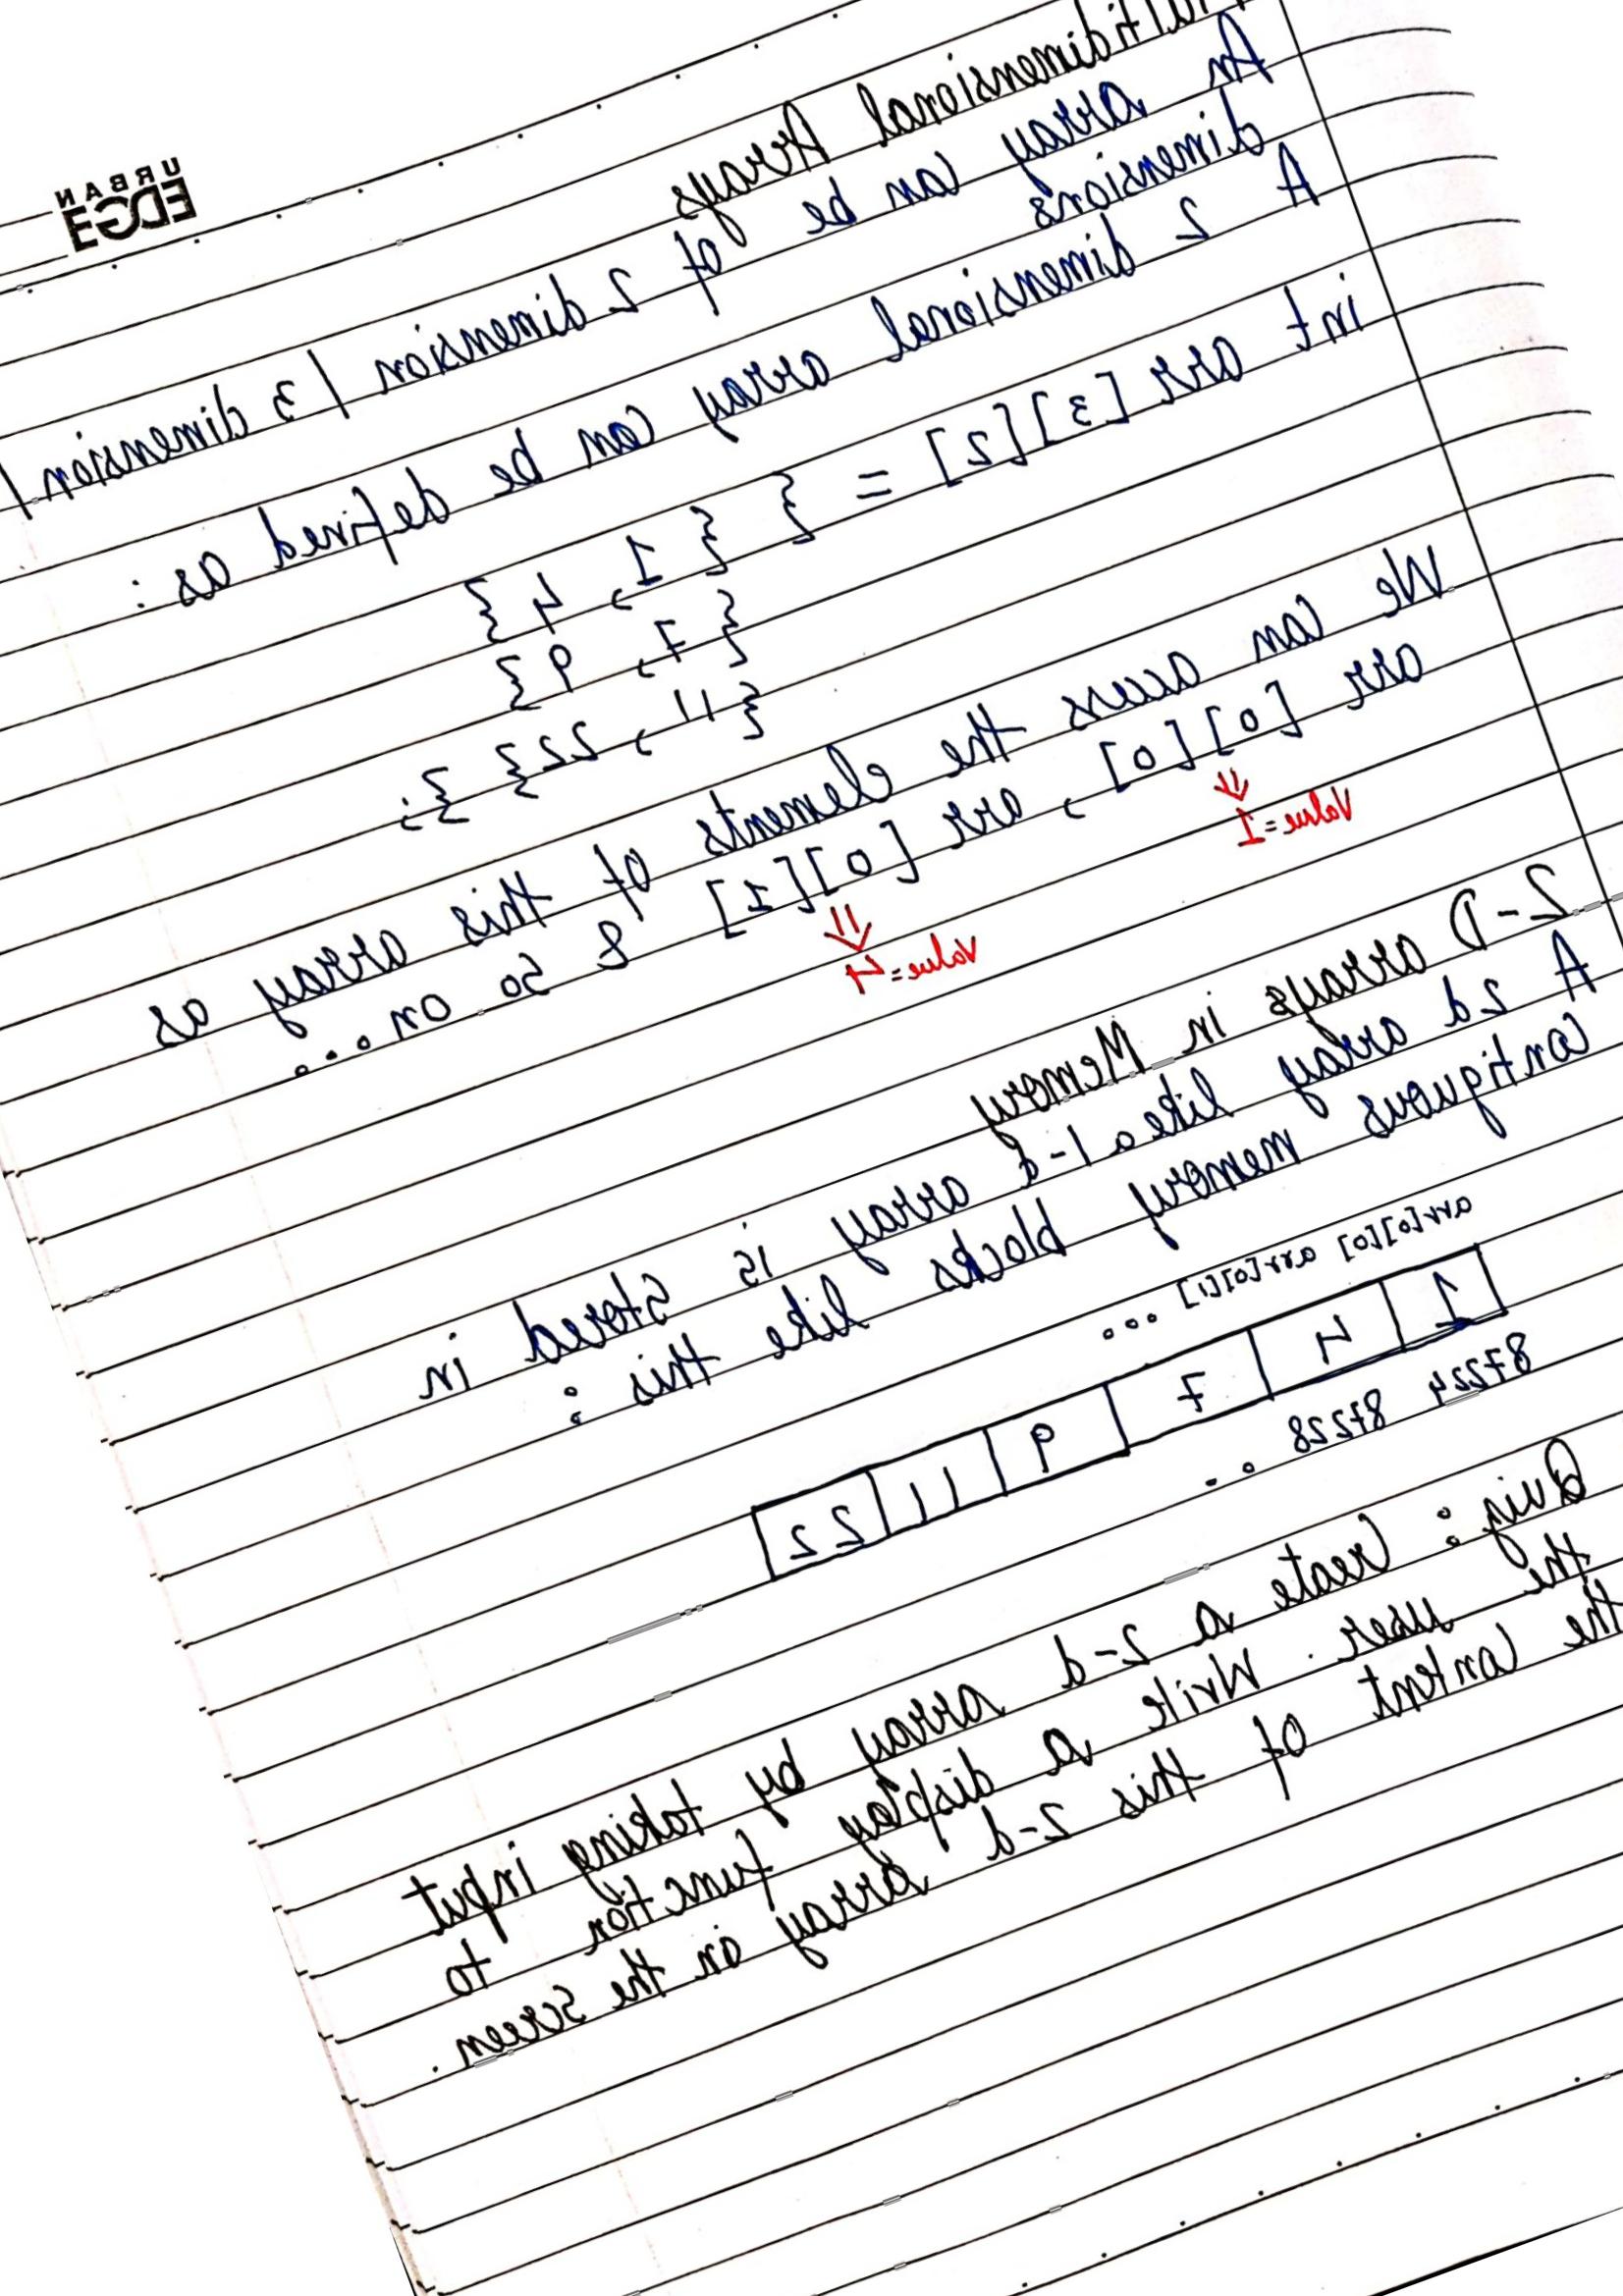 URBAN
EDGE
Multidimensional Arrays
An array can be of 2 dimension / 3 dimension /
dimensions
A 2 dimensional array can be defined as :
int arr [3][2] = { { 1, 4 }
{ 7, 9 }
{ 11, 22 } };
We can access the elements of this array as
arr [0][0] , arr [0][1] & so on...
Value=1
Value=4
2-D arrays in Memory
A 2d array like a 1-d array is stored in
contiguous memory blocks like this :
arr[0][0] arr[0][1] ...
1 4 7 9 11 22
87224 87228 ..
Quiz : Create a 2-d array by taking input
the user. Write a display function to
the content of this 2-d array on the screen.